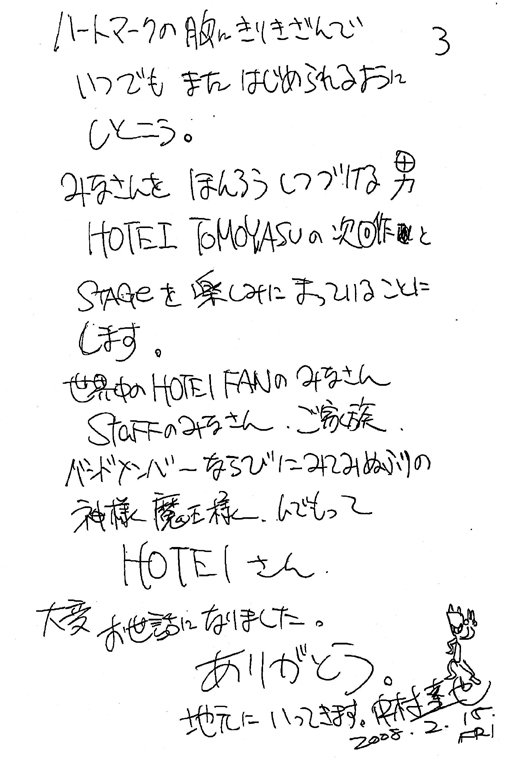 3
ハートマークの胸にきりきざんで
いつでも また はじめられるように
しとこう。
みなさんを ほんろうしつづける男
HOTEI TOMOYASUの次回作と
STAGeを楽しみにまっていることに
します。
世界中のHOTEI FANのみなさん
STaFFのみなさん、ご家族、
バンドメンバーならびにみてみぬふりの
神様、魔王様、んでもって
HOTEI さん、
大変 お世話になりました。
ありがとう。
地元に いってきます。中村達也
2008.2.15.
FRI